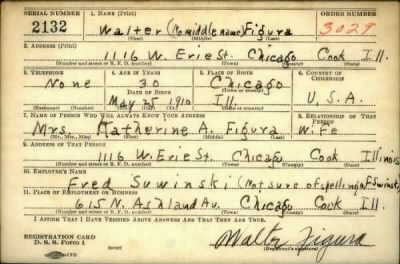 SERIAL NUMBER 1. NAME (Print) ORDER NUMBER
2132 Walter (No middle name) Figura 3029
(First) (Middle) (Last)
2. ADDRESS (Print)
1116 W. Erie St. Chicago Cook Ill.
(Number and street or R. F. D. number) (Town) (County) (State)
3. TELEPHONE 4. AGE IN YEARS 5. PLACE OF BIRTH 6. COUNTRY OF CITIZENSHIP
None 30 Chicago
DATE OF BIRTH (Town or county)
May 25 1910 Ill. U.S.A.
(Exchange) (Number) (Mo.) (Day) (Yr.) (State or country)
7. NAME OF PERSON WHO WILL ALWAYS KNOW YOUR ADDRESS 8. RELATIONSHIP OF THAT PERSON
Mrs. Katherine A. Figura Wife
(Mr., Mrs., Miss) (First) (Middle) (Last)
9. ADDRESS OF THAT PERSON
1116 W. Erie St. Chicago Cook Illinois
(Number and street or R. F. D. number) (Town) (County) (State)
10. EMPLOYER'S NAME
Fred Suwinski (Not sure of spelling
11. PLACE OF EMPLOYMENT OR BUSINESS
615 N. Ashland Av. Chicago Cook Ill.
(Number and street or R. F. D. number) (Town) (County) (State)
I AFFIRM THAT I HAVE VERIFIED ABOVE ANSWERS AND THAT THEY ARE TRUE.
REGISTRATION CARD
D. S. S. Form 1 Walter Figura
(Registrant's signature)